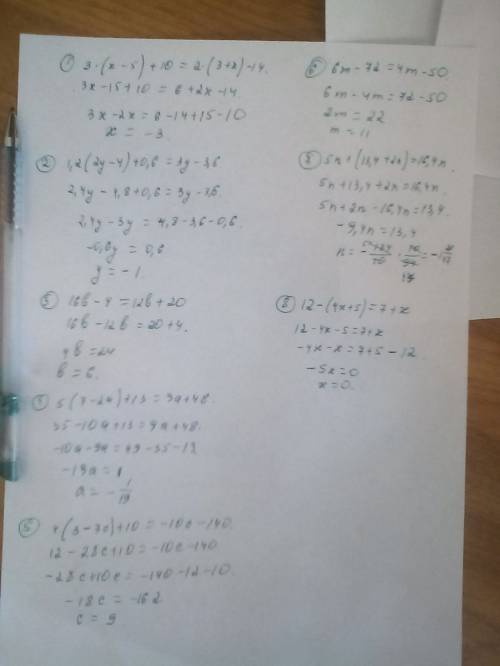 1) 3·(x-5)+10=2·(3+x)-14.
3x-15+10=6+2x-14
3x-2x=6-14+15-10
x=-3.
2) 1,2(2y-4)+0,6=3y-3,6
2,4y-4,8+0,6=3y-3,6.
2,4y-3y=4,8-3,6-0,6.
-0,6y=0,6
y=-1.
3) 16b-4=12b+20
16b-12b=20+4.
4b=24
b=6.
5(7-2a)+13=9a+48.
35-10a+13=9a+48.
-10a-9a=
-19a=
a=-
5) 4(3-7c)+10=-10c-140.
12-28c+10=-10c-140
-28c+10c=-140-12-10.
-18c=-162
c=9
6) 6m-72=4m-50.
6m-4m=72-50
2m=22
m=11
5n+(13,4+2n)=16,4n.
5n+13,4+2n=16,4n.
5n+2n-16,4n=13,4.
-9,4n=13,4
n=-
12-(4x+5)=7+x
12-4x-5=7+x
-4x-x=7+5-12.
-5x=0
x=0.